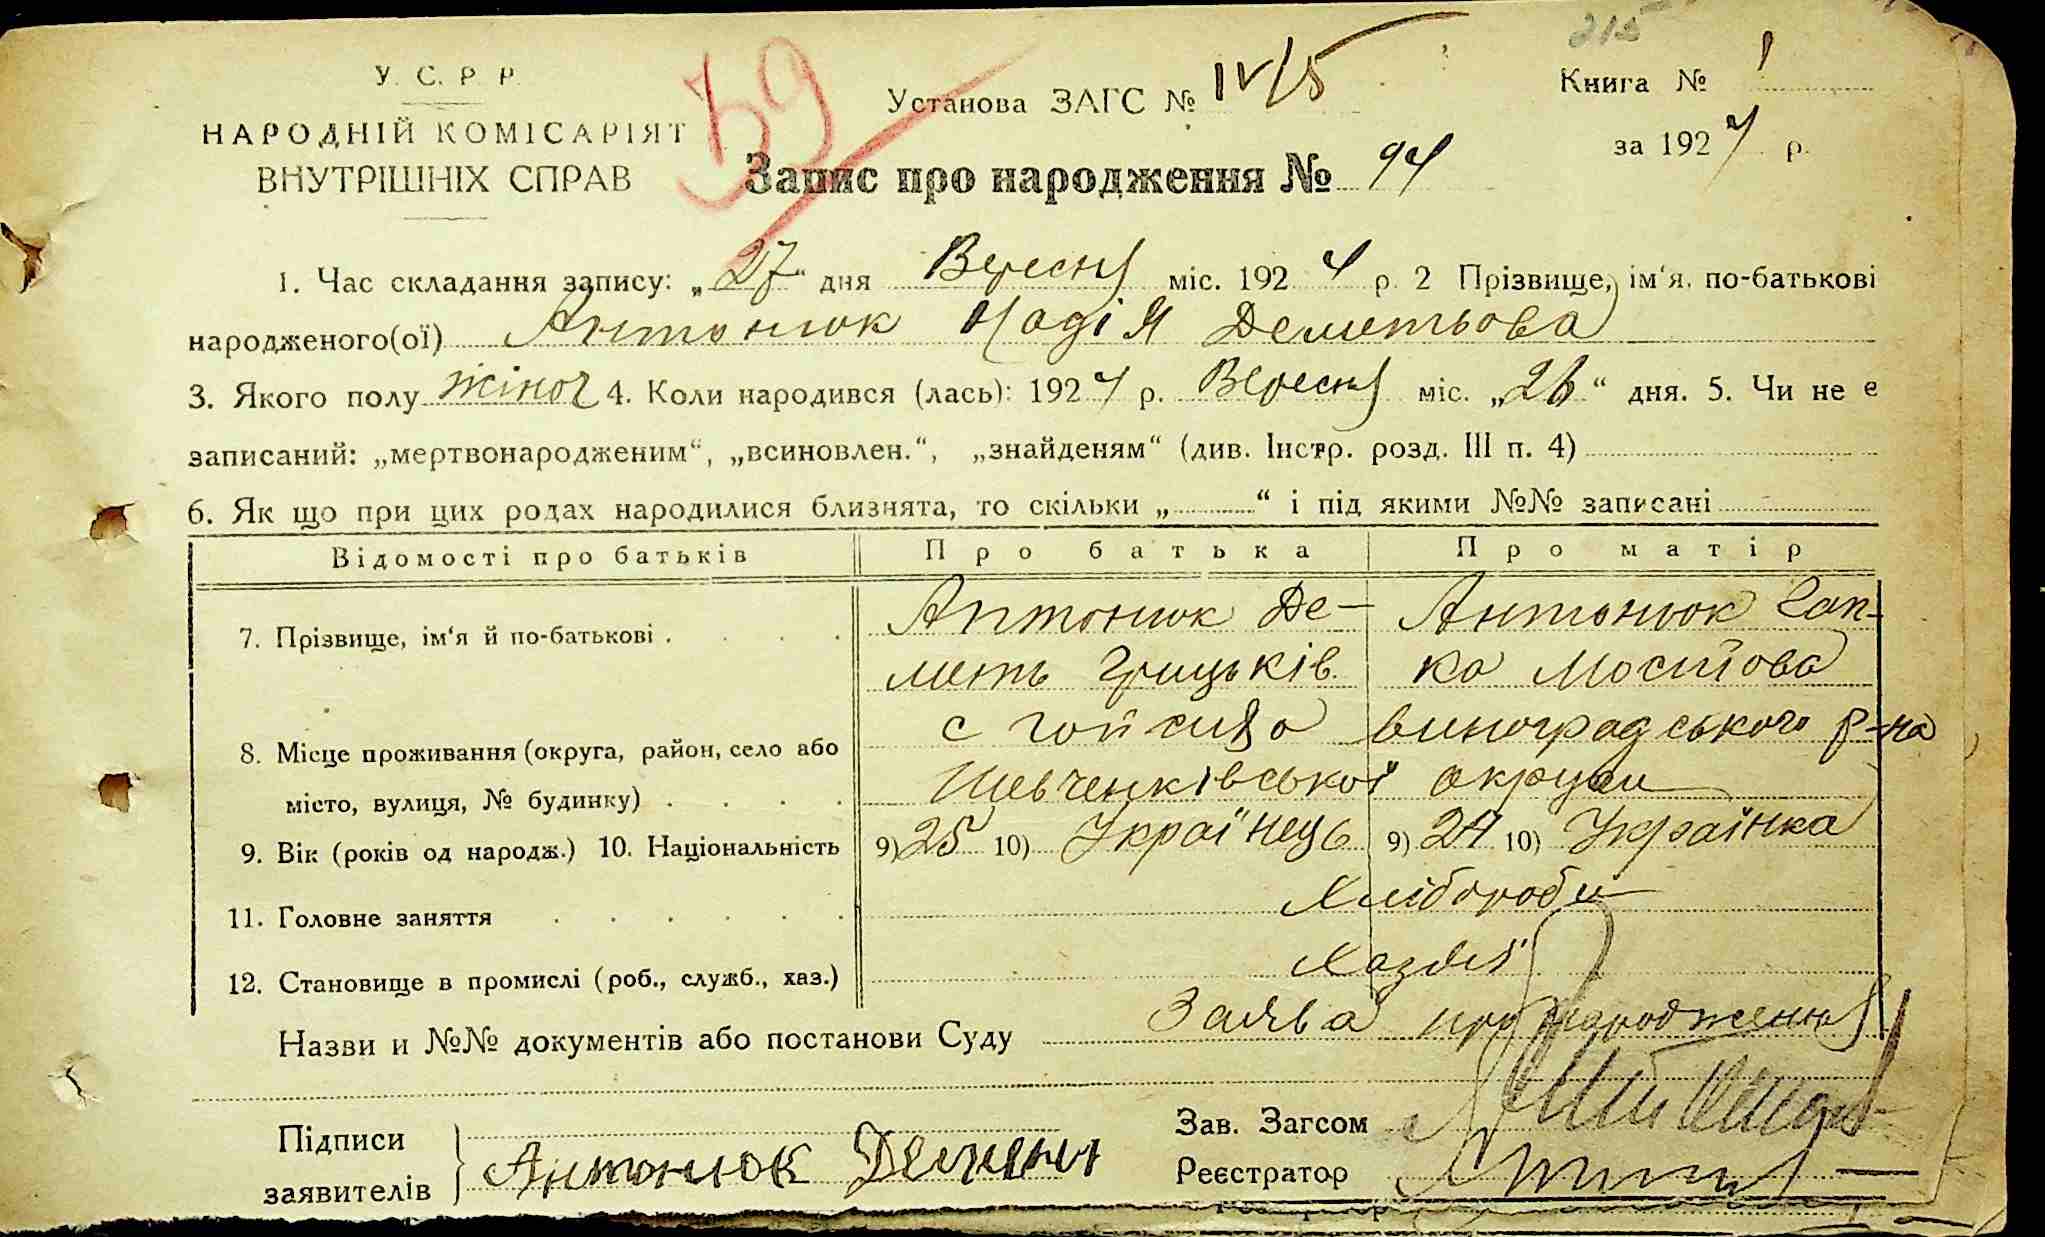 215
У. С. Р. Р.
НАРОДНІЙ КОМІСАРІЯТ
ВНУТРІШНІХ СПРАВ
39
Установа ЗАГС № IV/5
Книга № 1
за 1924 р.
Запис про народження № 94
1. Час складання запису: „27“ дня Вересня міс. 1924 р. 2 Прізвище, ім'я, по-батькові
народженого(ої) Антонюк Надія Деметьова
3. Якого полу жіноч 4. Коли народився (лась): 1924 р. Вересня міс. „26“ дня. 5. Чи не є
записаний: „мертвонародженим“, „всиновлен.“, „знайденям“ (див. Інстр. розд. III п. 4)
6. Як що при цих родах народилися близнята, то скільки „ “ і під якими №№ записані
Відомості про батьків Про батька Про матір
7. Прізвище, ім'я й по-батькові . . . . Антонюк Де- Антонюк Гап-
меть Грицьків. ка Мосійова
8. Місце проживання (округа, район, село або с виноградського р-на
місто, вулиця, № будинку) . . . . Шевченківської округи
9. Вік (років од народж.) 10. Національність 9) 25 10) Українець 9) 24 10) Українка
11. Головне заняття . . . . . . Хлібороби
12. Становище в промислі (роб., служб., хаз.) Хазяї
Назви и №№ документів або постанови Суду Заява про народження
Підписи
заявителів Антонюк
Зав. Загсом
Реєстратор